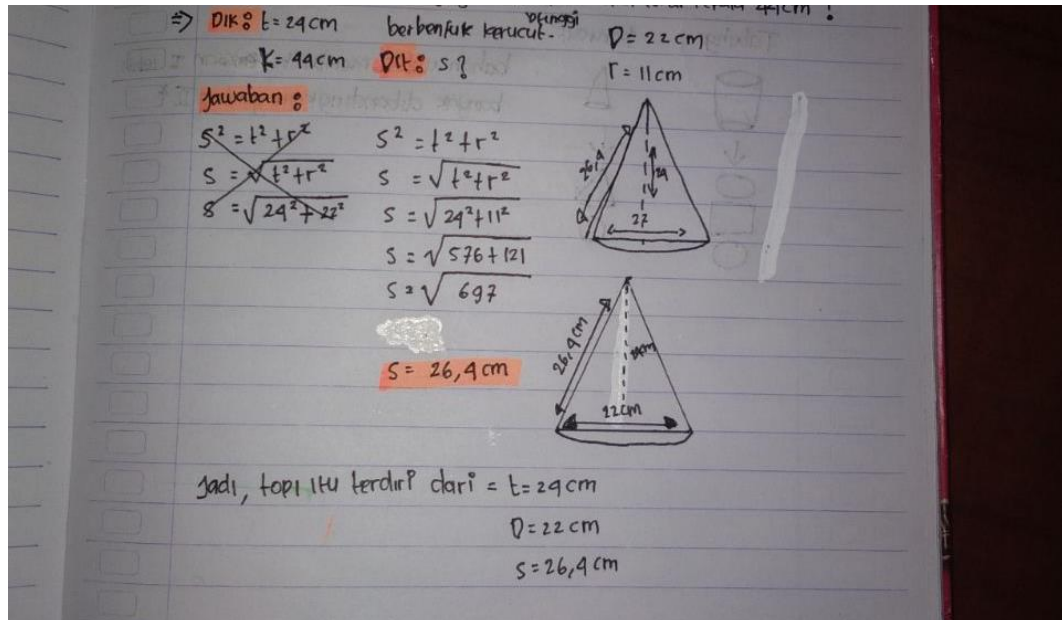 44cm !
⇒ DIK : t = 24 cm
berbentuk kerucut.
D = 22 cm
K = 44cm
Dit : s ?
r = 11 cm
Jawaban :
s² = t² + r²
s = √t² + r²
s = √24² + 22²
s² = t² + r²
s = √t² + r²
s = √24² + 11²
s = √576 + 121
s = √697
s = 26,4 cm
26,4
24
22
26,4 cm
24cm
22cm
Jadi, topi itu terdiri dari = t = 24 cm
D = 22 cm
s = 26,4 cm